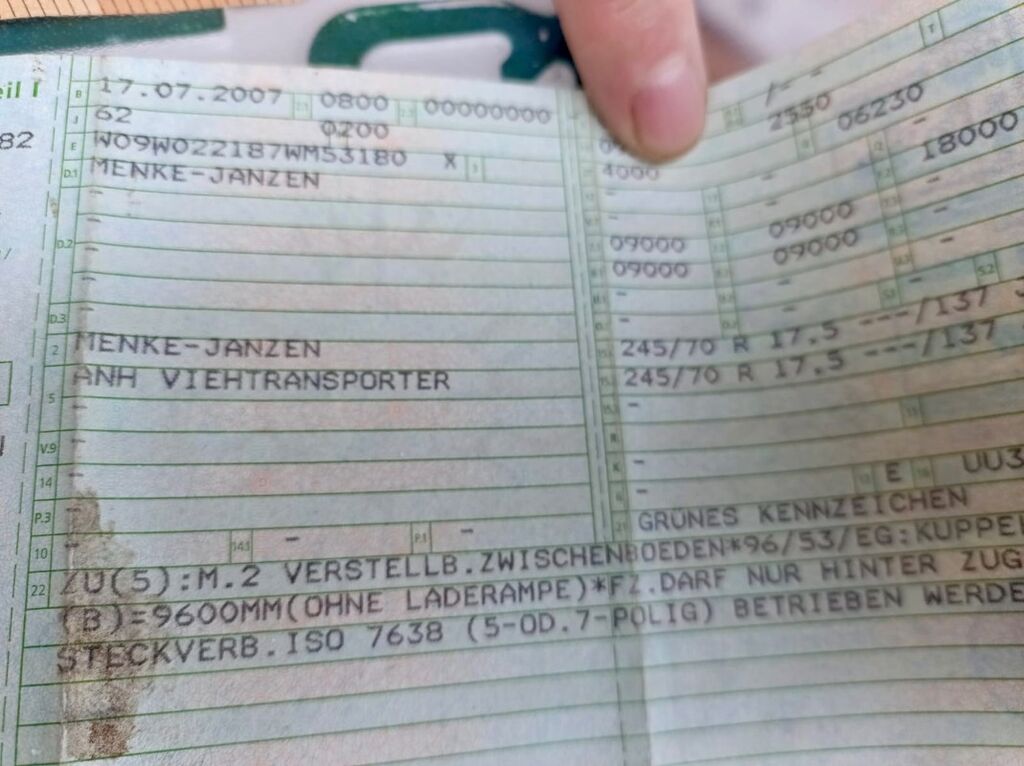 eil I
B 17.07.2007 2.1 0800 2.2 00000000 /- - T
J 62 0200 2550 06230
82
E W09W022187WM53180 X 3 4000 - 18000
D.1 MENKE-JANZEN
- - 09000 -
D.2 - 09000 09000 -
- 09000 -
- - - S.2
D.3 -
2 MENKE-JANZEN 245/70 R 17,5 ---/137 J
5 ANH VIEHTRANSPORTER 245/70 R 17,5 ---/137
- -
V.9 - -
14 - E UU3
P.3 - -
10 - 14.1 - P.1 - 21 GRÜNES KENNZEICHEN
22 ZU(5):M.2 VERSTELLB.ZWISCHENBOEDEN*96/53/EG:KUPPE
(B)=9600MM(OHNE LADERAMPE)*FZ.DARF NUR HINTER ZUG
STECKVERB.ISO 7638 (5-OD.7-POLIG) BETRIEBEN WERDE